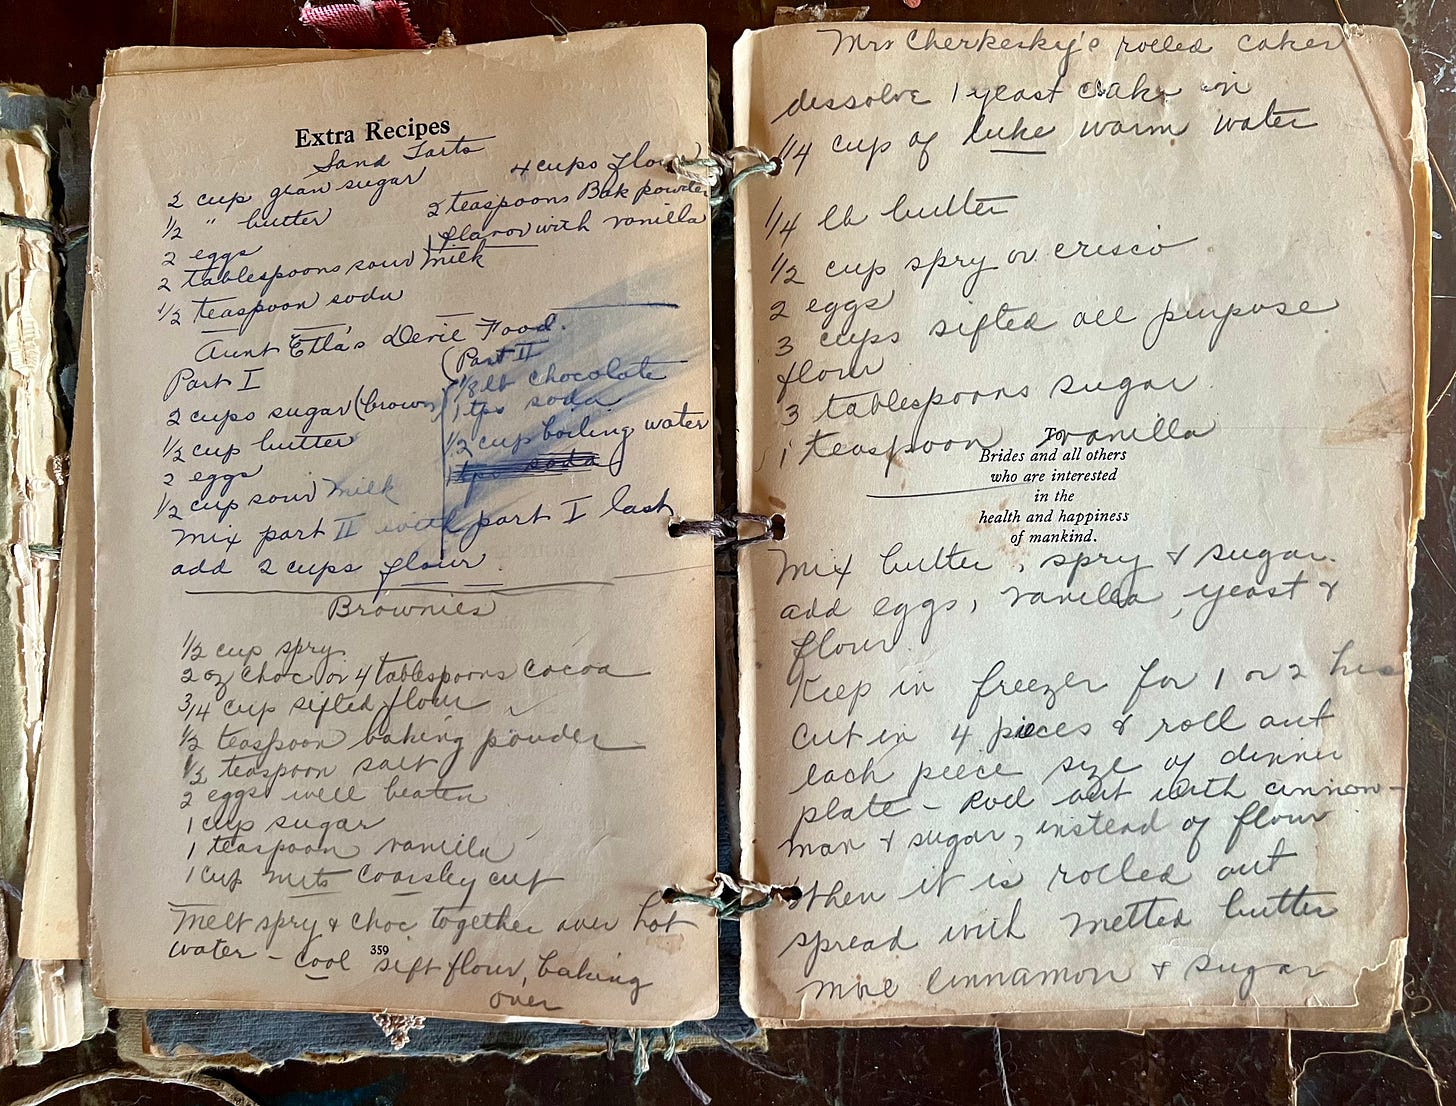 Extra Recipes
Sand Tarts
2 cup gran sugar
1/2 " butter
2 eggs
2 tablespoons sour milk
1/2 teaspoon soda
4 cups flour
2 teaspoons Bak powder
flavor with vanilla
Aunt Etta's Devil Food.
Part I
2 cups sugar (brown)
1/2 cup butter
2 eggs
1/2 cup sour milk
Part II
1/2 lb chocolate
1 tps soda
1/2 cup boiling water
1 tps soda
Mix part II with part I last
add 2 cups flour.
Brownies
1/2 cup spry
2 oz choc or 4 tablespoons cocoa
3/4 cup sifted flour
1/2 teaspoon baking powder
1/2 teaspoon salt
2 eggs well beaten
1 cup sugar
1 teaspoon vanilla
1 cup nuts coarsley cut
Melt spry & choc together over hot
water - cool sift flour, baking
over
359
Mrs Cherkesky's rolled cakes
dissolve 1 yeast cake in
1/4 cup of luke warm water
1/4 lb butter
1/2 cup spry or crisco
2 eggs
3 cups sifted all purpose
flour
3 tablespoons sugar
1 teaspoon vanilla
To
Brides and all others
who are interested
in the
health and happiness
of mankind.
Mix butter, spry & sugar.
add eggs, vanilla, yeast &
flour.
Keep in freezer for 1 or 2 hrs
Cut in 4 pieces & roll out
each peece size of dinner
plate - Roll out with cinnon-
man & sugar, instead of flour
When it is rolled out
spread with melted butter
more cinnamon & sugar